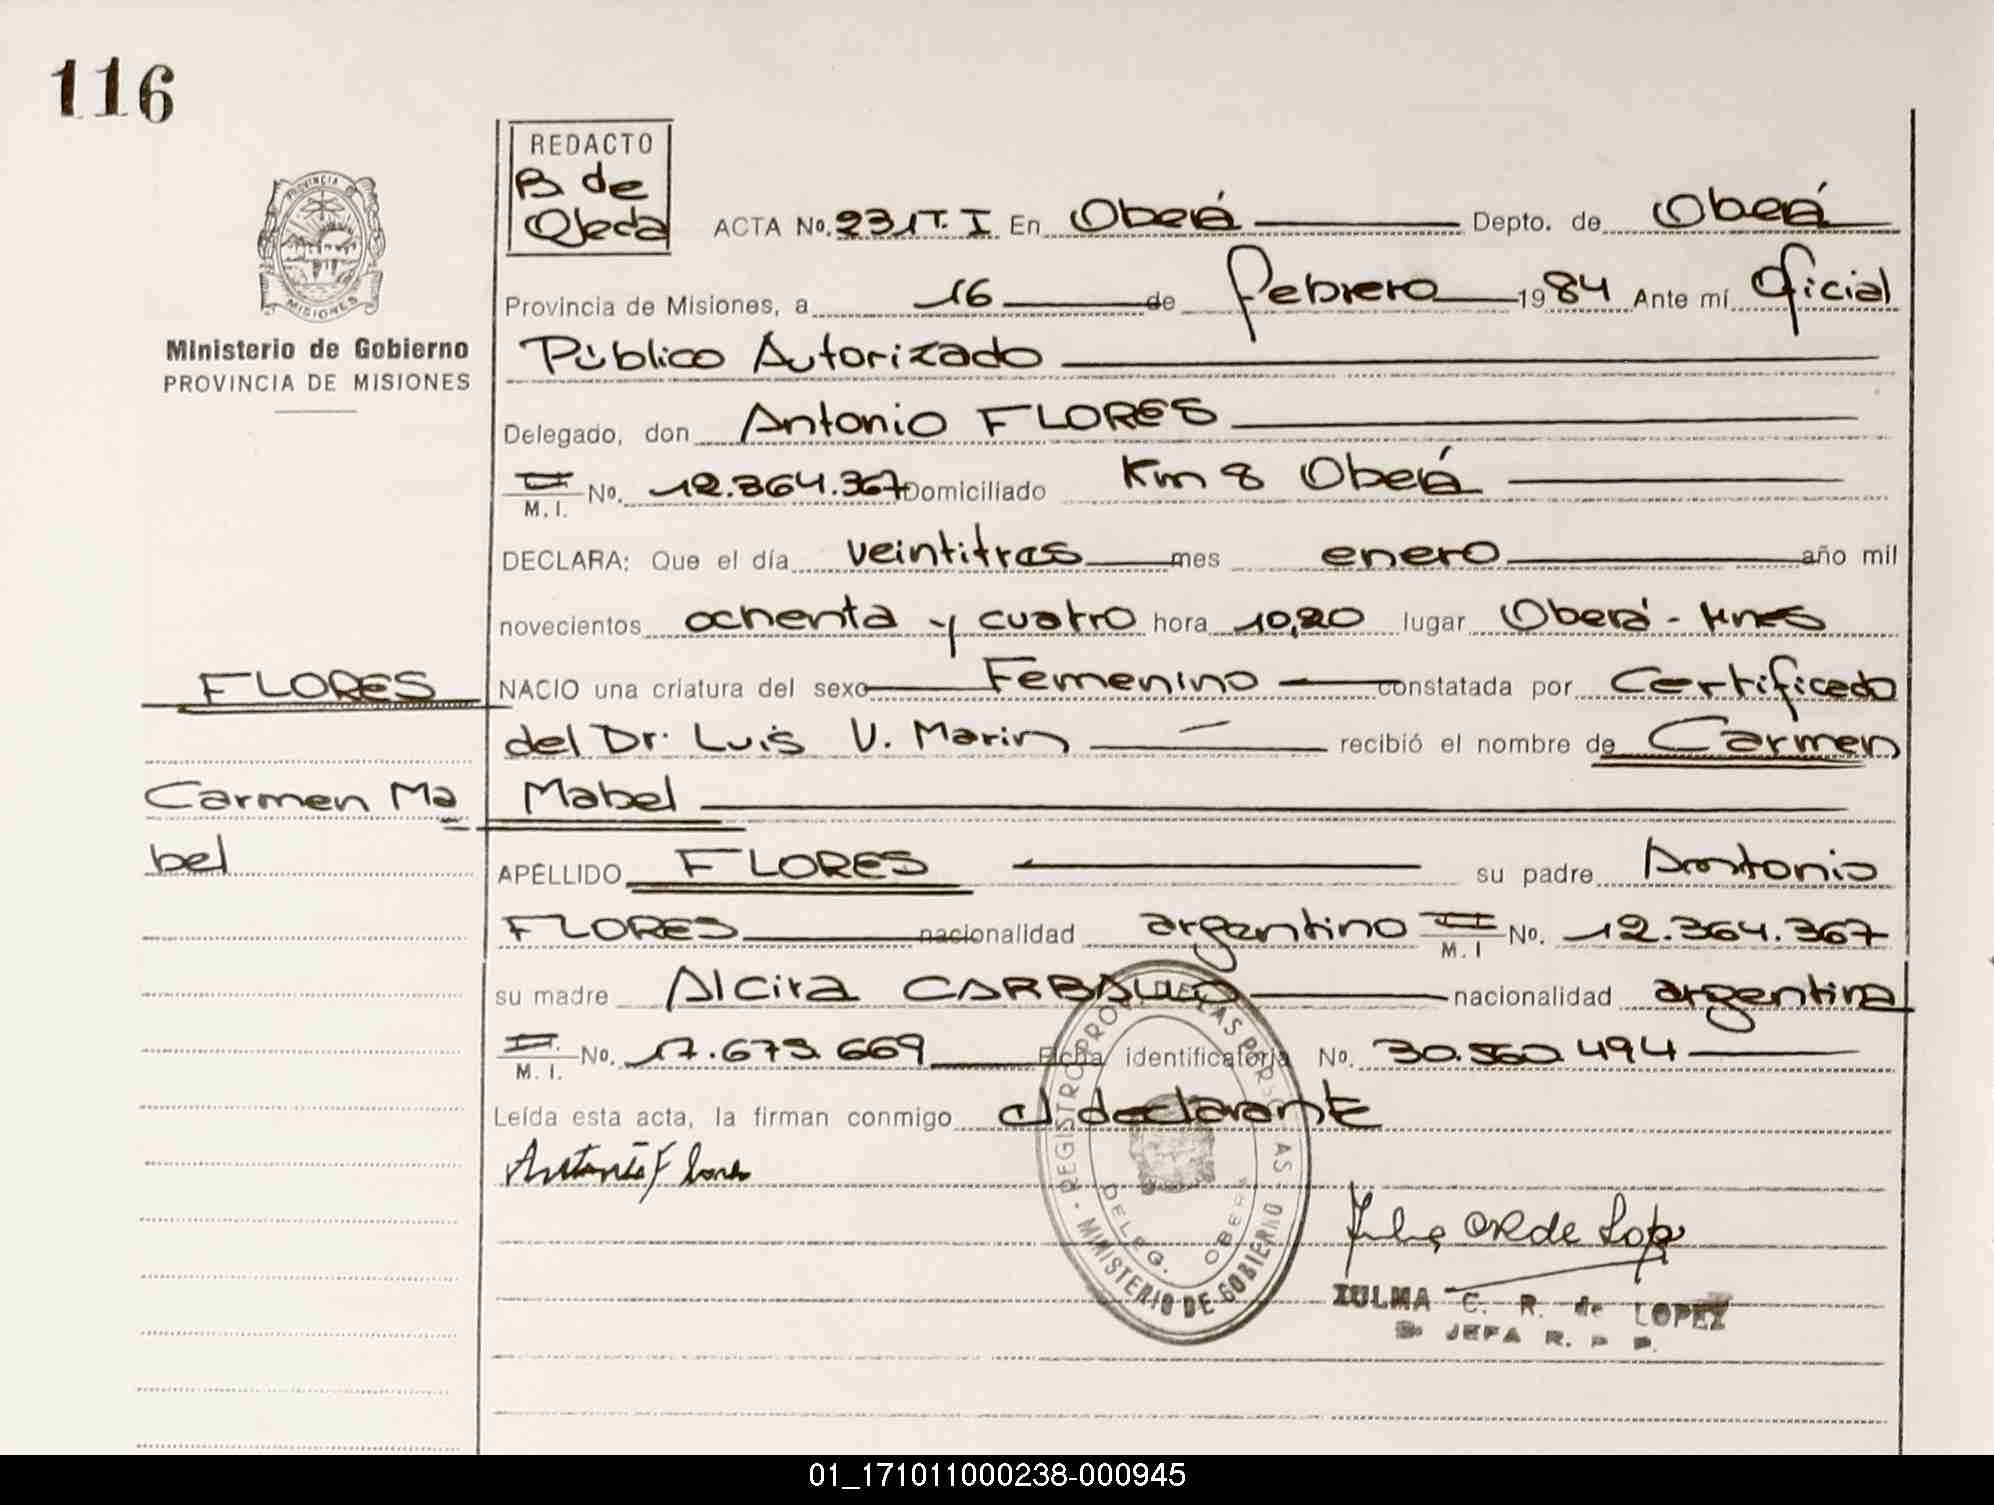 116
REDACTO
B de
Ojeda
ACTA No. 231 T. I En Oberá Depto. de Oberá
Provincia de Misiones, a 16 de febrero 1984 Ante mí Oficial
Público Autorizado
Delegado, don Antonio FLORES
M.I. No. 12.364.367 Domiciliado Km 8 Oberá
DECLARA: Que el día veintitres mes enero año mil
novecientos ochenta y cuatro hora 10,20 lugar Oberá - Mnes
NACIO una criatura del sexo Femenino constatada por Certificado
del Dr. Luis V. Marin recibió el nombre de Carmen
Mabel
APELLIDO FLORES su padre Antonio
FLORES nacionalidad argentino M.I No. 12.364.367
su madre Alcira CARBALLO nacionalidad argentina
M.I. No. 17.673.669 Ficha identificatoria No. 30.560.494
Leída esta acta, la firman conmigo el declarante
Antonio Flores
ZULMA C. R. de LOPEZ
JEFA R. P. P.
PROVINCIA DE MISIONES
Ministerio de Gobierno
PROVINCIA DE MISIONES
FLORES
Carmen Ma
bel
REGISTRO PROV. DE LAS PERSONAS
DELEG. OBERA
MINISTERIO DE GOBIERNO
01_171011000238-000945